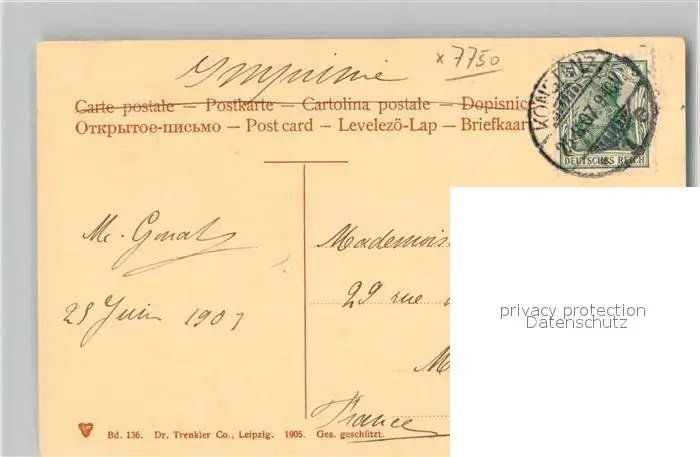 Imprimé
x 7750
Carte postale — Postkarte — Cartolina postale — Dopisnice
Открытое-письмо — Post card — Levelező-Lap — Briefkaart
DEUTSCHES REICH
Mademois
29 rue
25 Juin 1907
M
France
privacy protection
Datenschutz
Bd. 136. Dr. Trenkler Co., Leipzig. 1905. Ges. geschützt.